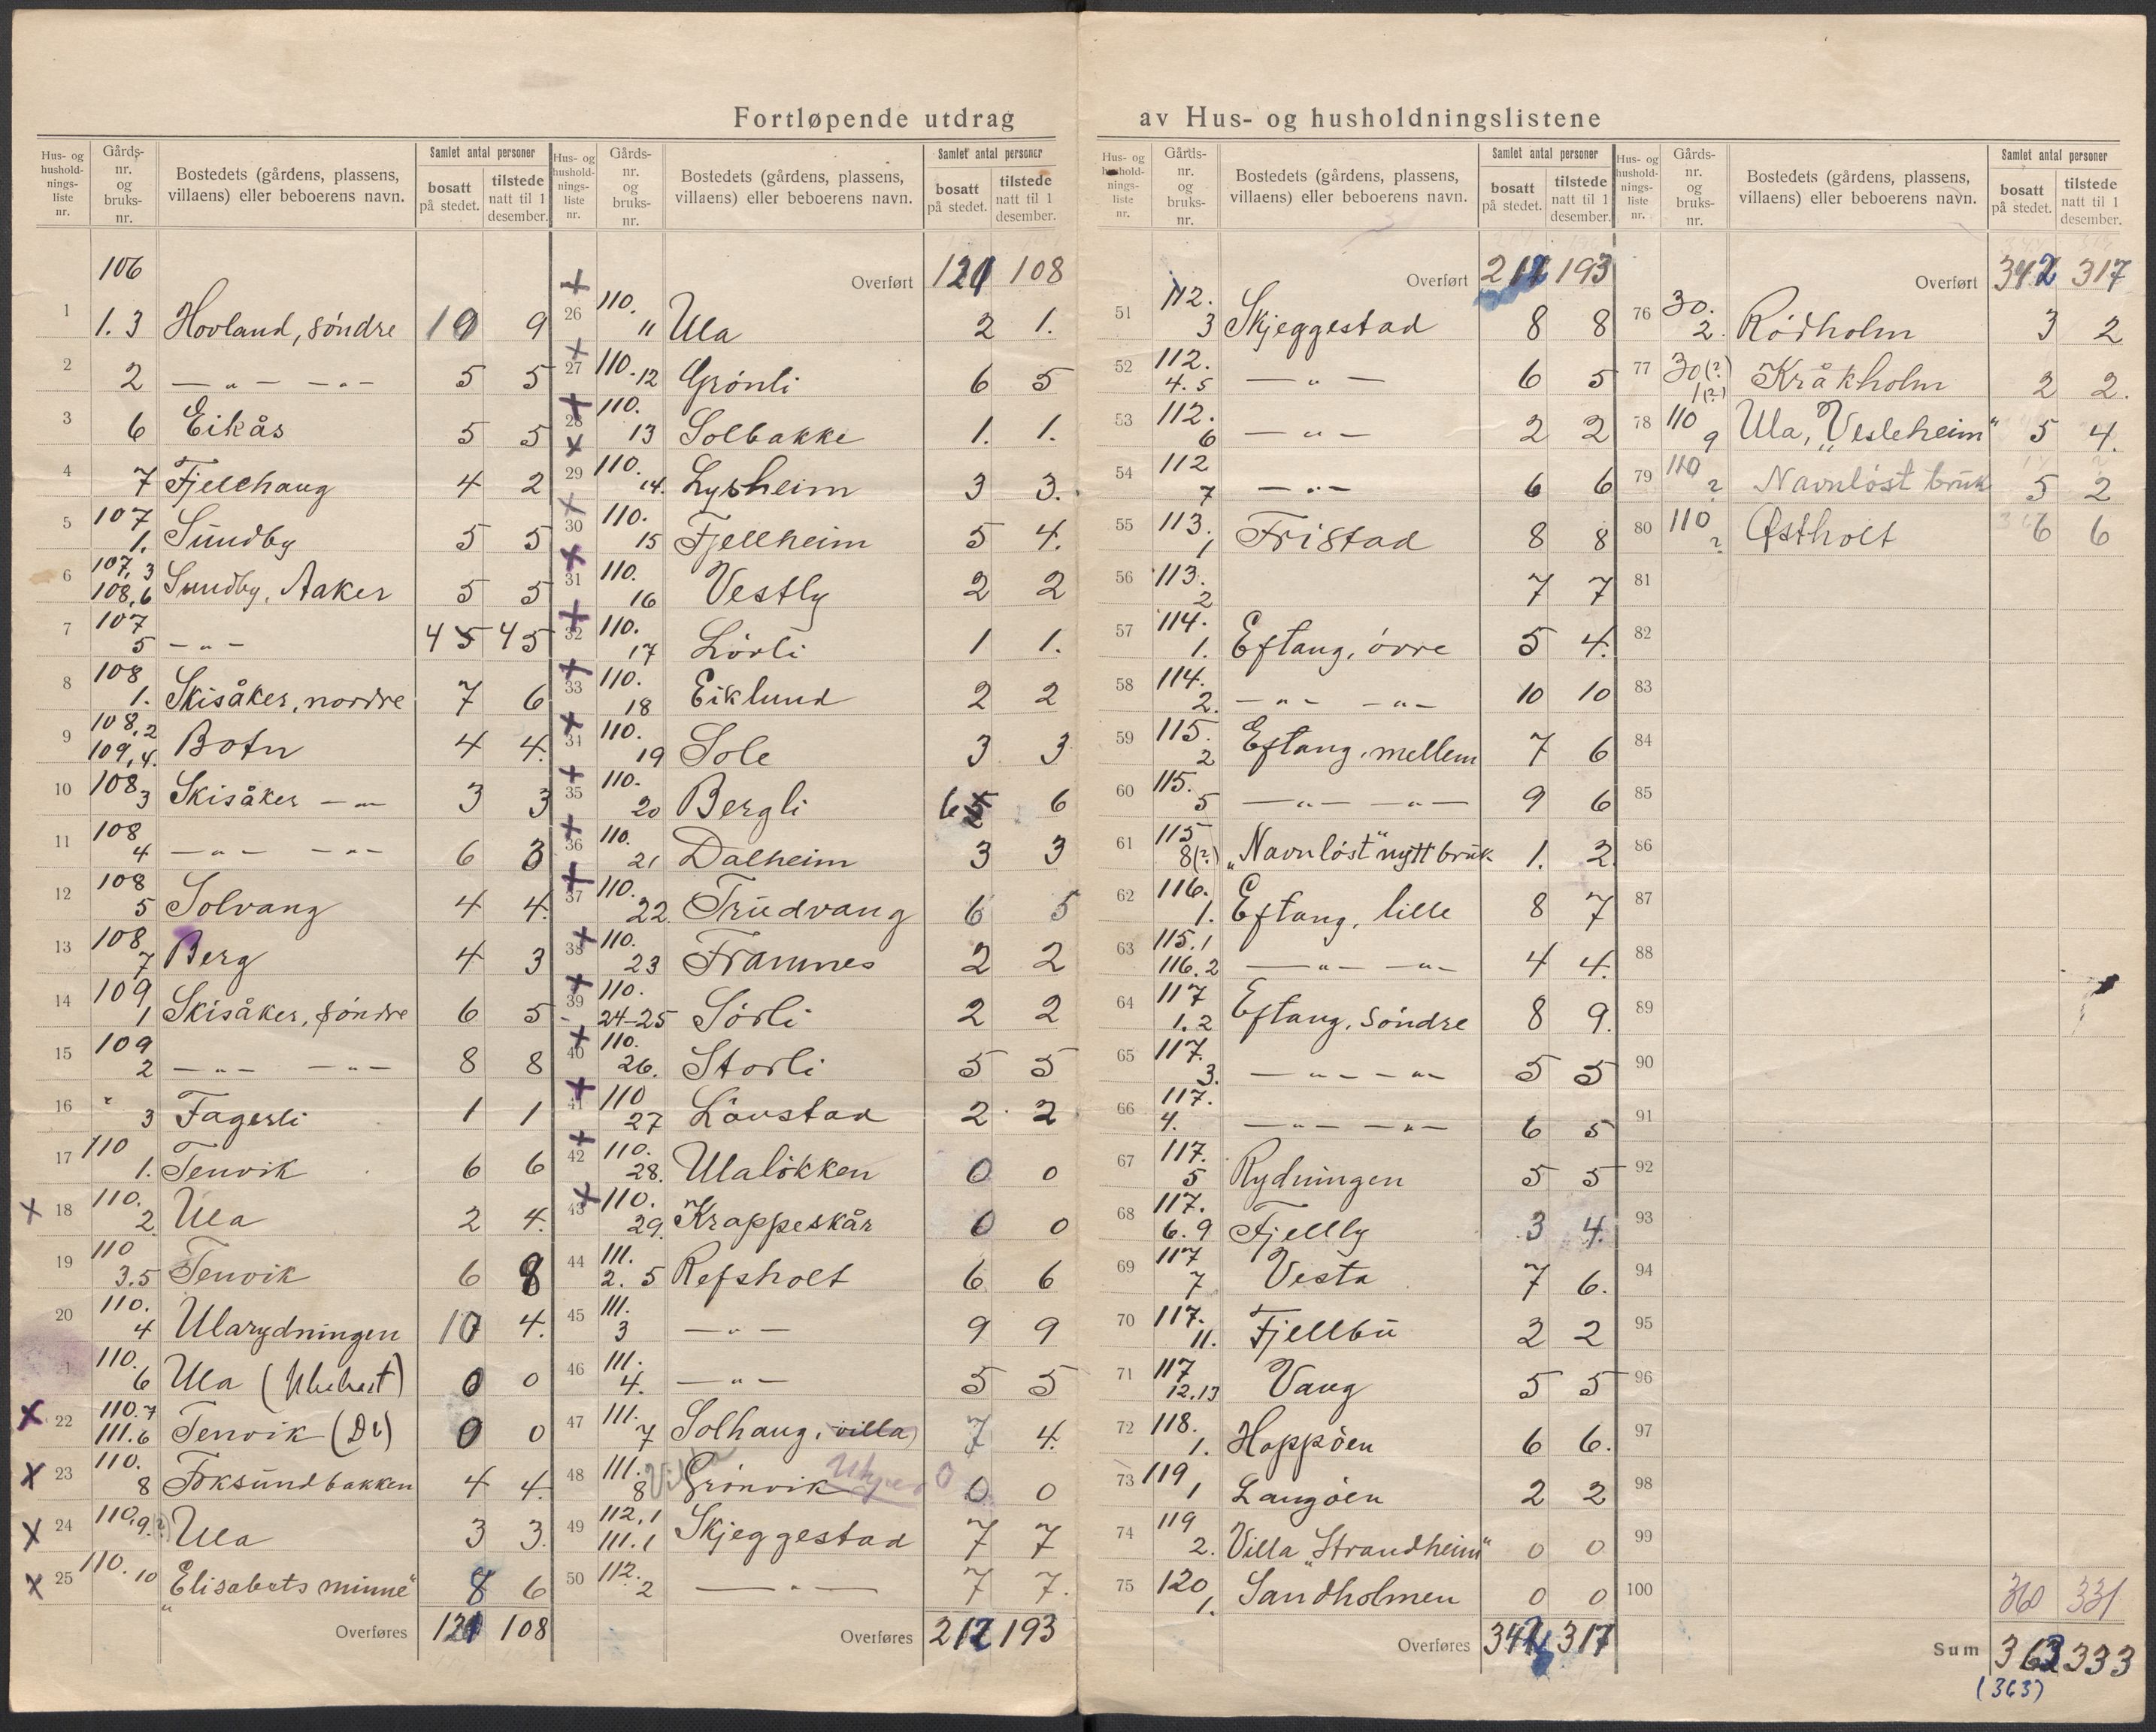 Fortløpende utdrag av Hus- og husholdningslistene
Hus- og husholdnings-liste nr. Gårds-nr. og bruks-nr. Bostedets (gårdens, plassens, villaens) eller beboerens navn. Samlet antal personer bosatt på stedet. tilstede natt til 1 desember.
106
1 1.3 Hovland, söndre 10 9
2 2 — " — — " — 5 5
3 6 Eikås 5 5
4 7 Fjellhaug 4 2
5 107 1. Sundby 5 5
6 107,3 108,6 Sundby, Aaker 5 5
7 107 5 — " — 4 5 4 5
8 108 1. Skisåker, nordre 7 6
9 108,2 109,4. Botn 4 4.
10 108 3 Skisåker — " — 3 3
11 108 4 — " — — " — 6 3
12 108 5 Solvang 4 4.
13 108 7 Berg 4 3
14 109 1 Skisåker, söndre 6 5
15 109 2 — " — — " — 8 8
16 " 3 Fagerli 1 1
17 110 1. Tenvik 6 6
x 18 110. 2 Ula 2 4.
19 110 3.5 Tenvik 6 8
20 110. 4 Ularydningen 10 4.
1 110. 6 Ula 0 0
x 22 110.7 111.6 Tenvik (Do) 0 0
x 23 110. 8 Foksundbakken 4 4.
x 24 110,9. (?) Ula 3 3.
x 25 110. 10 „Elisabets minne" 8 6
Overføres 121 108
Hus- og husholdnings-liste nr. Gårds-nr. og bruks-nr. Bostedets (gårdens, plassens, villaens) eller beboerens navn. Samlet antal personer bosatt på stedet. tilstede natt til 1 desember.
Overført 121 108
x 26 110. 11 Ula 2 1.
x 27 110. 12 Grönli 6 5
x 28 110. 13 Solbakke 1. 1.
x 29 110. 14. Lysheim 3 3.
x 30 110. 15 Fjellheim 5 4.
x 31 110. 16 Vestly 2 2
x 32 110. 17 Lövli 1 1.
x 33 110. 18 Eiklund 2 2
x 34 110. 19 Sole 3 3
x 35 110. 20 Bergli 6 5 6
x 36 110. 21 Dalheim 3 3
x 37 110. 22. Trudvang 6 5
x 38 110. 23 Framnes 2 2
x 39 110. 24-25 Sörli 2 2
x 40 110. 26. Storli 5 5
x 41 110 27 Lövstad 2 2
x 42 110. 28. Ulalökken 0 0
x 43 110. 29. Krappeskår 0 0
44 111. 2. 5 Refsholt 6 6
45 111. 3 — " — 9 9
46 111. 4. — " — 5 5
47 111. 7 Solhaug, villa 7 4.
48 111. 8 Grönvik 0 0
49 112,1 111.1 Skjeggestad 7 7
50 112. 2 — " — 7 7.
Overføres 212 193
Hus- og husholdnings-liste nr. Gårds-nr. og bruks-nr. Bostedets (gårdens, plassens, villaens) eller beboerens navn. Samlet antal personer bosatt på stedet. tilstede natt til 1 desember.
Overført 212 193
51 112. 3 Skjeggestad 8 8
52 112. 4.5 — " — 6 5
53 112. 6 — " — 2 2
54 112 7 — " — 6 6
55 113. 1 Fristad 8 8
56 113. 2 7 7
57 114. 1. Eftang, övre 5 4.
58 114. 2. — " — — " — 10 10
59 115. 2 Eftang, mellem 7 6
60 115. 5 — " — — " — 9 6
61 115 8(?) „Navnlöst" nytt bruk 1. 2.
62 116. 1. Eftang, lille 8 7
63 115.1 116.2 — " — — " — 4 4.
64 117 1.2 Eftang, Söndre 8 9.
65 117. 3. — " — — " — 5 5
66 117. 4. — " — — " — 6 5
67 117. 5 Rydningen 5 5
68 117. 6.9 Fjelly 3 4.
69 117 7 Vesta 7 6.
70 117. 11. Fjellbu 2 2
71 117 12.13 Vang 5 5
72 118. 1. Hoppöen 6 6.
73 119, 1 Langöen 2 2
74 119 2. Villa „Strandheim" 0 0
75 120 1. Sandholmen 0 0
Overføres 342 317
Hus- og husholdnings-liste nr. Gårds-nr. og bruks-nr. Bostedets (gårdens, plassens, villaens) eller beboerens navn. Samlet antal personer bosatt på stedet. tilstede natt til 1 desember.
Overført 342 317
76 30. 2. Rödholm 3 2
77 30(?) 1(?) Kråkholm 2 2.
78 110 9 Ula, „Vesleheim" 5 4.
79 110 ? Navnlöst bruk 5 2
80 110 ? Østholt 6 6
81
82
83
84
85
86
87
88
89
90
91
92
93
94
95
96
97
98
99
100
360 331
Sum 363 333
(363)